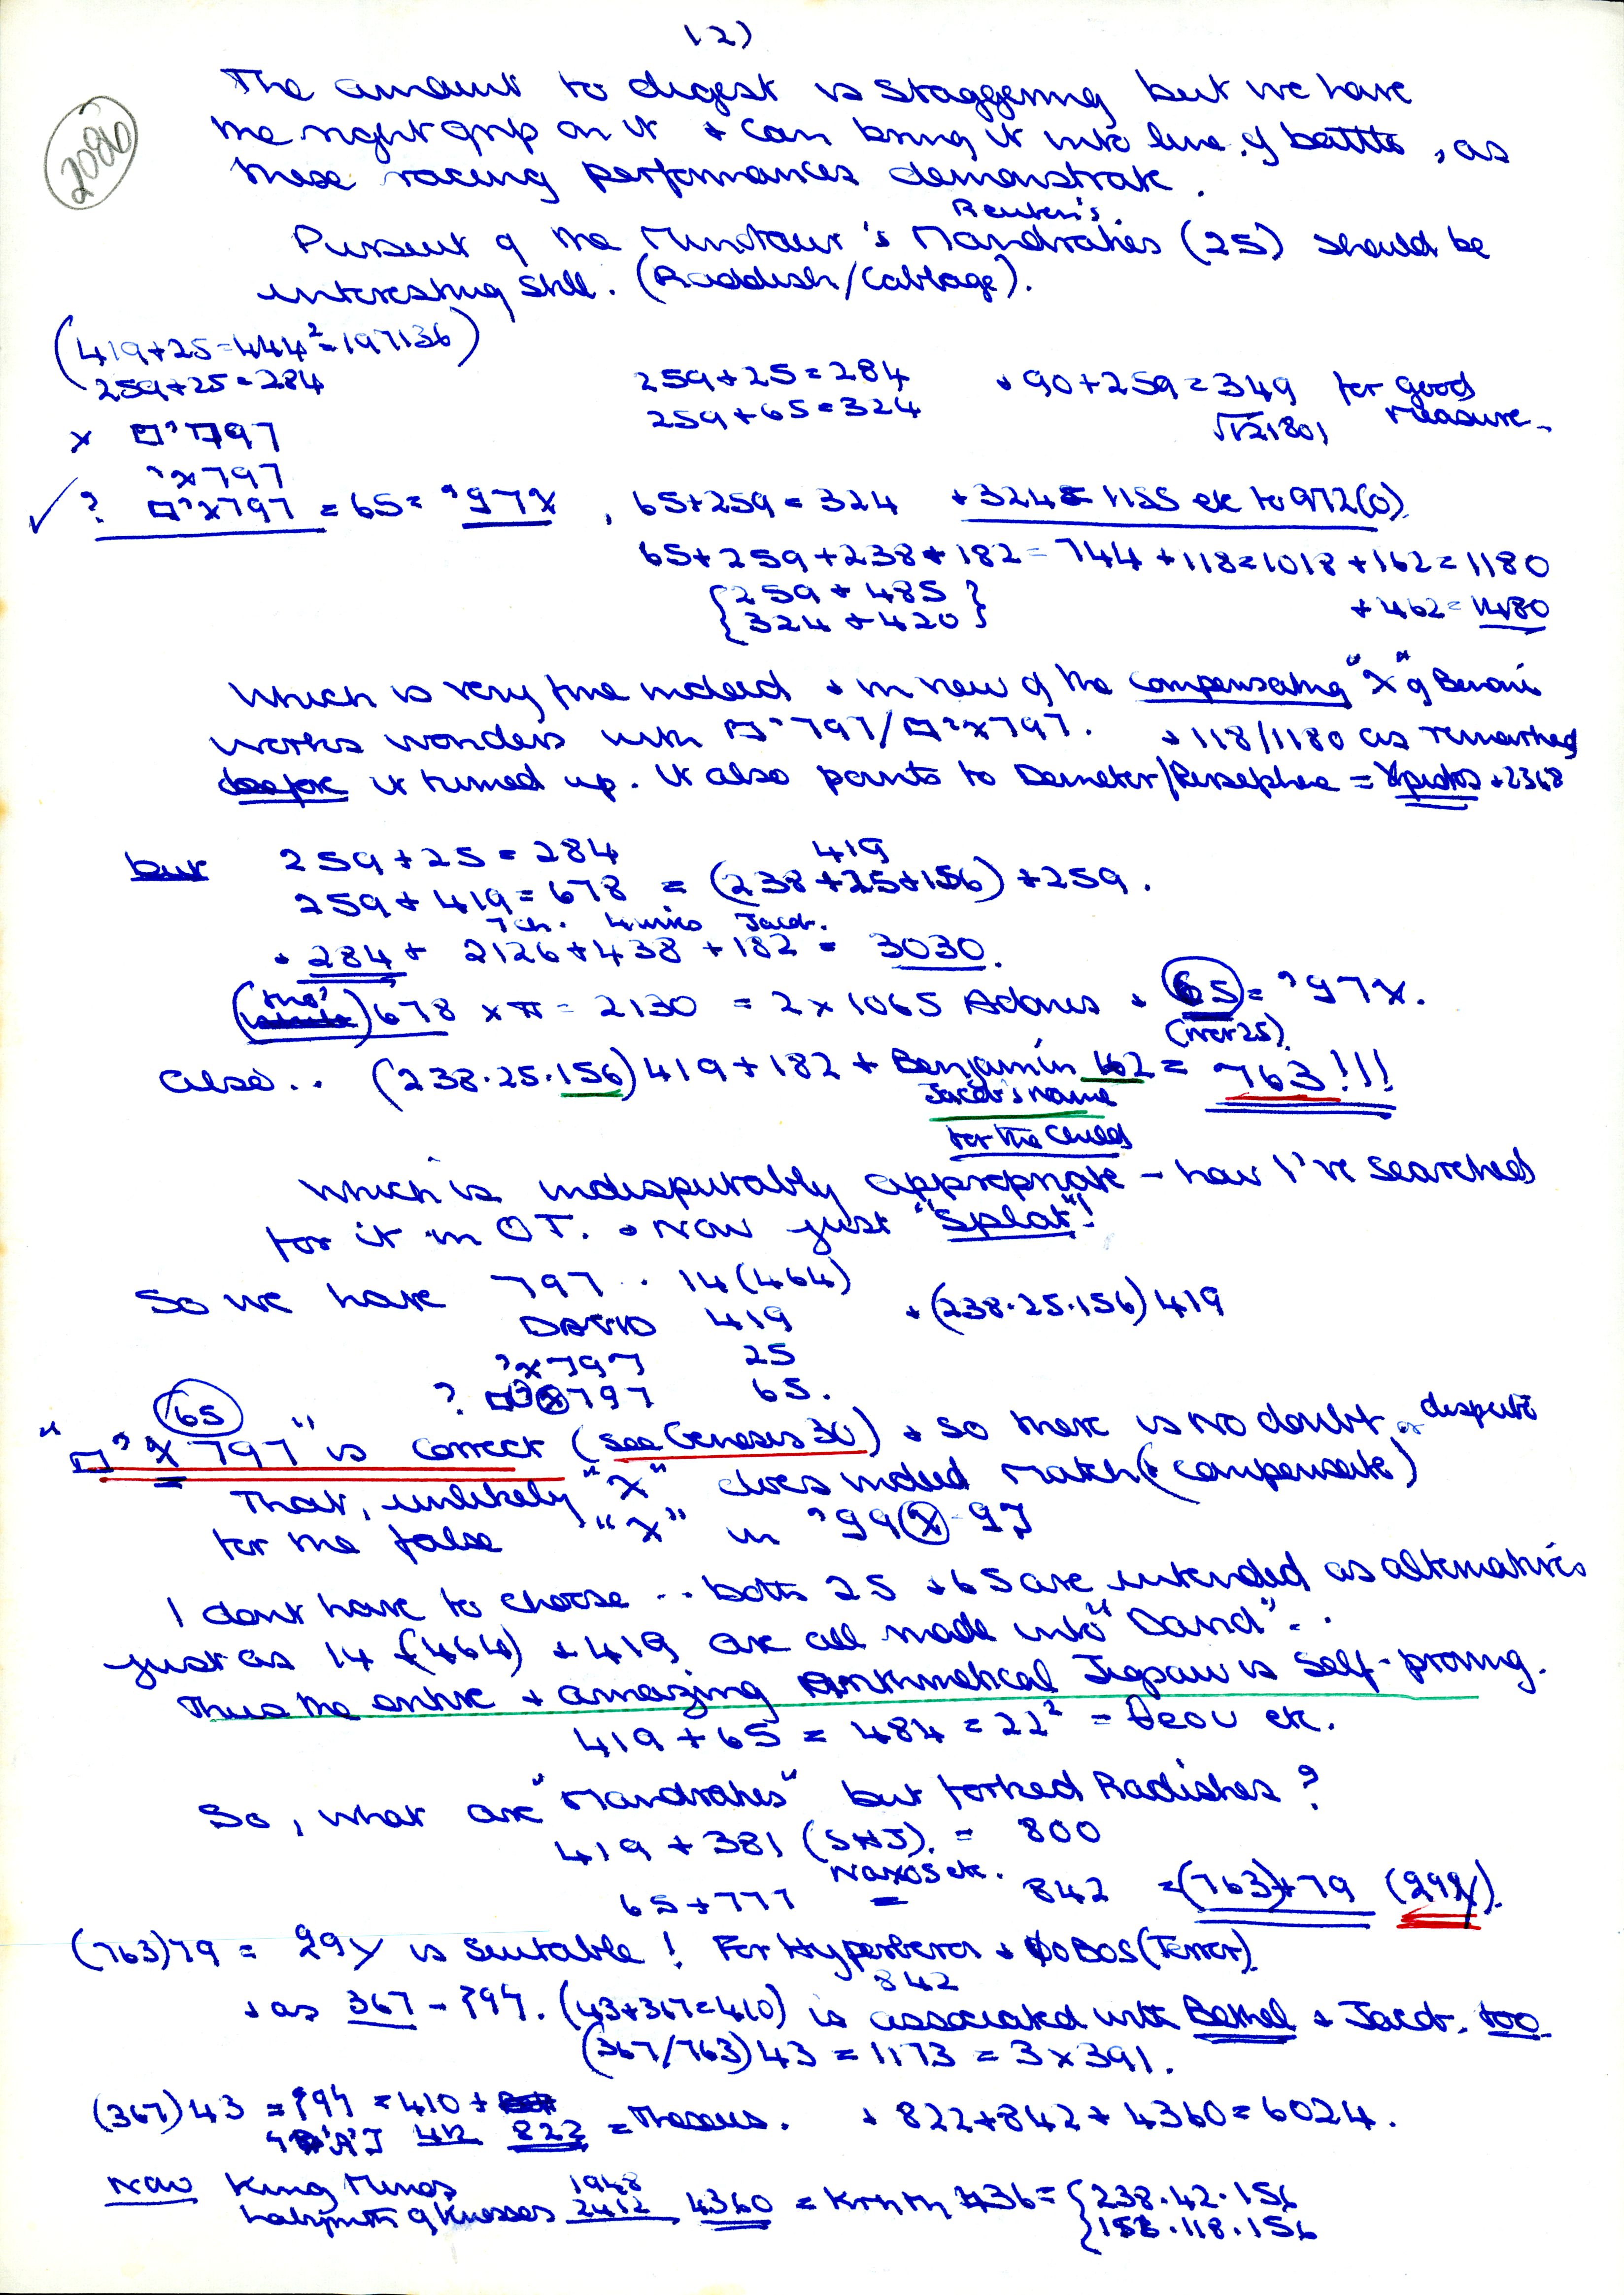 (2)
2086
The amount to digest is staggering but we have
the right grip on it + can bring it into line of battle, as
these racing performances demonstrate.
Reuben's
Pursuit of the Minotaur's Mandrakes (25) should be
interesting still. (Raddish/Cabbage).
(419+25=444²=197136)
259+25=284
259+25=284 + 90+259=349 for good
259+65=324 √121801 measure.
65+259=324 +324 = 1155 etc to 972(0)
65+259+238+182=744+118=1018+162=1180
{259+485}
{324+420} +462=1480
Which is very fine indeed + in view of the compensating "X" of
works wonders with + 118/1180 as remarked
before it turned up. It also points to Demeter/Persephone = + 2368
but 259+25=284 419
259+419=678 = (238+25+156)+259.
Jacob.
+ 284 + 2126+438+182 = 3030.
678 × π = 2130 = 2×1065 Adonis + 65 =
(not 25)
also.. (238.25.156) 419+182+ Benjamin 162 = 763!!!
Jacob's name
for the child
Which is indisputably appropriate - how I've searched
for it in OT. + now just "Splat"!
So we have 14(464)
DAVID 419 + (238.25.156) 419
25
? 65.
65
is correct (see Genesis 30) + so there is no doubt or dispute
That, unlikely "X" does indeed match (+ compensate)
for the false "X" in
I dont have to choose .. both 25 + 65 are intended as alternatives
just as 14 + (464) + 419 are all made into "David"..
Thus the entire + amazing Arithmetical Jigsaw is self-proving.
419+65 = 484 = 22² = θεου etc.
So, what are "Mandrakes" but forked Radishes?
419+381 (SHJ) = 800
Naxos etc.
65+777 = 842 =(763)+79
(763)79 = is suitable! For Hyperberea + ΦOBOS (Terror)
842
+ as 367 - (43+367=410) is associated with Bethel + Jacob. too.
(367/763) 43 = 1173 = 3×391.
(367) 43 = = 410 +
412 822 = Theseus. + 822+842+4360=6024.
Now King Minos 1948
Labyrinth of Knosses 2412 4360 = 436 = {238.42.156
.118.156